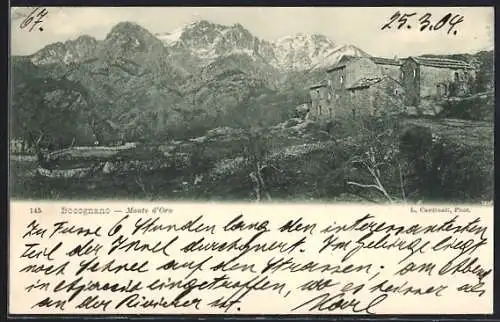 67.
25.3.04.
145 Bocognano — Monte d'Oro
L. Cardinali, Phot.
Zu Fuss 6 Stunden lang den interessantesten
Teil der Insel durchquert. Im Gebirge liegt
noch Schnee auf den Strassen; am Abend
in eingetroffen, wo es heisser als
an der Riviera ist. Karl